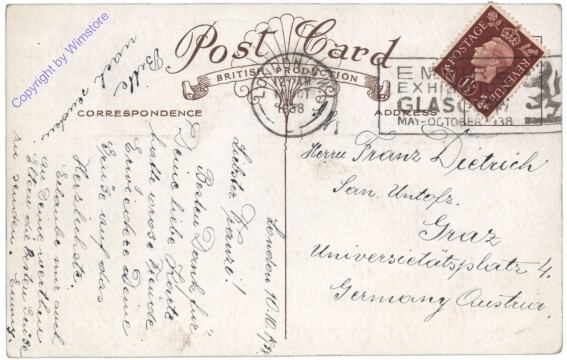 Copyright by Wimstore
Post Card
BRITISH PRODUCTION
CORRESPONDENCE
ADDRESS
LONDON
1938
EMPIRE
EXHIBITION
GLASGOW
MAY-OCTOBER 1938
POSTAGE
REVENUE
1½
Bitte
nach senden
London 10.10.38
Lieber Franz!
Besten Dank für
Deine liebe Karte
hatte grosse Freude
Erwiedere Deine
Grüße auf das
Herzlichste.
Erlaube mir auch
an Deine werthen
Eltern die besten Grüße
zu senden.
Herrn Franz Dietrich
San. Untofz.
Graz
Universietätsplatz 4.
Germany Austria.